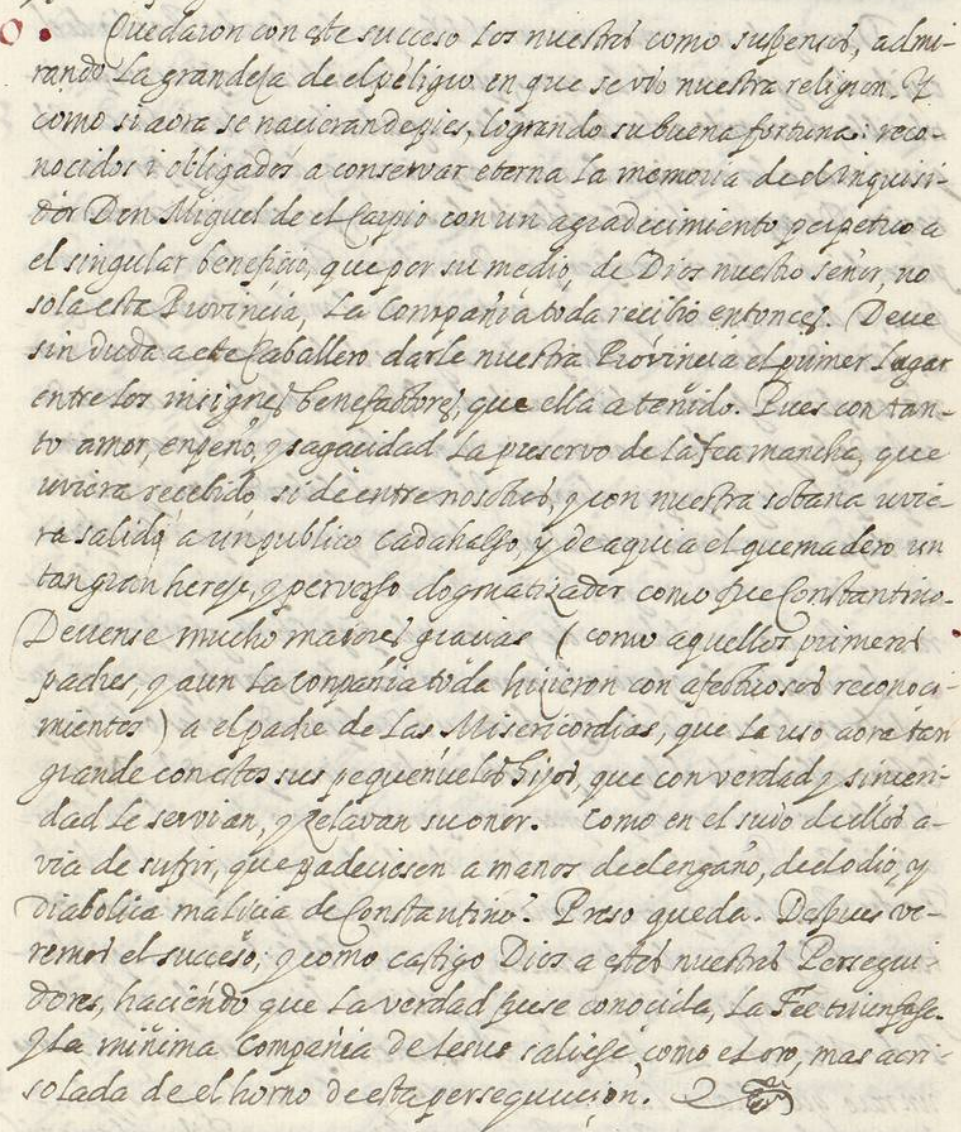 0. Quedaron con este sucçeso los nuestros como suspensos, admi-
rando la grandeza de el peligro en que se vio nuestra religion. Y
como si aora se nacieran de pies, logrando su buena fortuna: reco-
nocidos i obligados a conservar eterna la memoria de el Inquisi-
dor Don Miguel de el Carpio con un agradecimiento perpetuo a
el singular beneficio, que por su medio, de Dios nuestro señor, no
sola esta Provincia, la Compañia toda recibio entonces. Deve
sin duda a este Caballero darle nuestra Provincia el primer lugar
entre los insignes benefactores, que ella a tenido. Pues con tan-
to amor, enpeño, y sagacidad la preservo de la fea mancha, que
uviera recebido, si de entre nosotros, y con nuestra sotana uvie-
ra salido a un publico cadahalso, y de aqui a el quemadero un
tan gran hereje, y perverso dogmatizador como fue Constantino.
Devense mucho maiores gracias (como aquellos primeros
padres, y aun la Conpañia toda hizieron con afectuosos reconoci-
mientos) a el padre de las Misericordias, que la uso aora tan
grande con estos sus pequeñuelos hijos, que con verdad y sinceri-
dad le servian, y zelavan su onor. Como en el de ellos a-
via de sufrir, que padeciesen a manos de el engaño, de el odio, y
diabolica malicia de Constantino? Preso queda. Despues ve-
remos el sucçeso; y como castigo Dios a estos nuestros Persegui-
dores, haciendo que la verdad fuese conocida, la Fee triunfase.
Y la minima Compañia de Iesus saliese, como el oro, mas acri-
solada de el horno de esta persequucion.